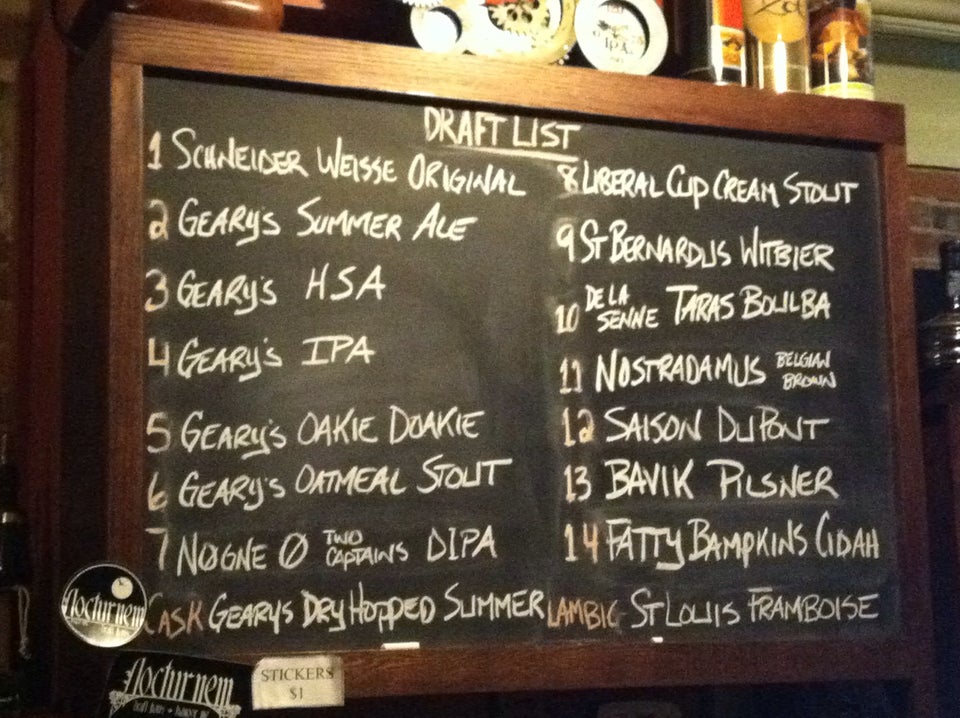 IPA
DRAFT LIST
1 SCHNEIDER WEISSE ORIGINAL
2 GEARY'S SUMMER ALE
3 GEARY'S HSA
4 GEARY'S IPA
5 GEARY'S OAKIE DOAKIE
6 GEARY'S OATMEAL STOUT
7 NØGNE Ø TWO CAPTAINS DIPA
CASK GEARY'S DRY HOPPED SUMMER
8 LIBERAL CUP CREAM STOUT
9 ST BERNARDUS WITBIER
10 DE LA SENNE TARAS BOULBA
11 NOSTRADAMUS BELGIAN BROWN
12 SAISON DUPONT
13 BAVIK PILSNER
14 FATTY BAMPKINS CIDAH
LAMBIC ST LOUIS FRAMBOISE
Nocturnem
Nocturnem
STICKERS
$1